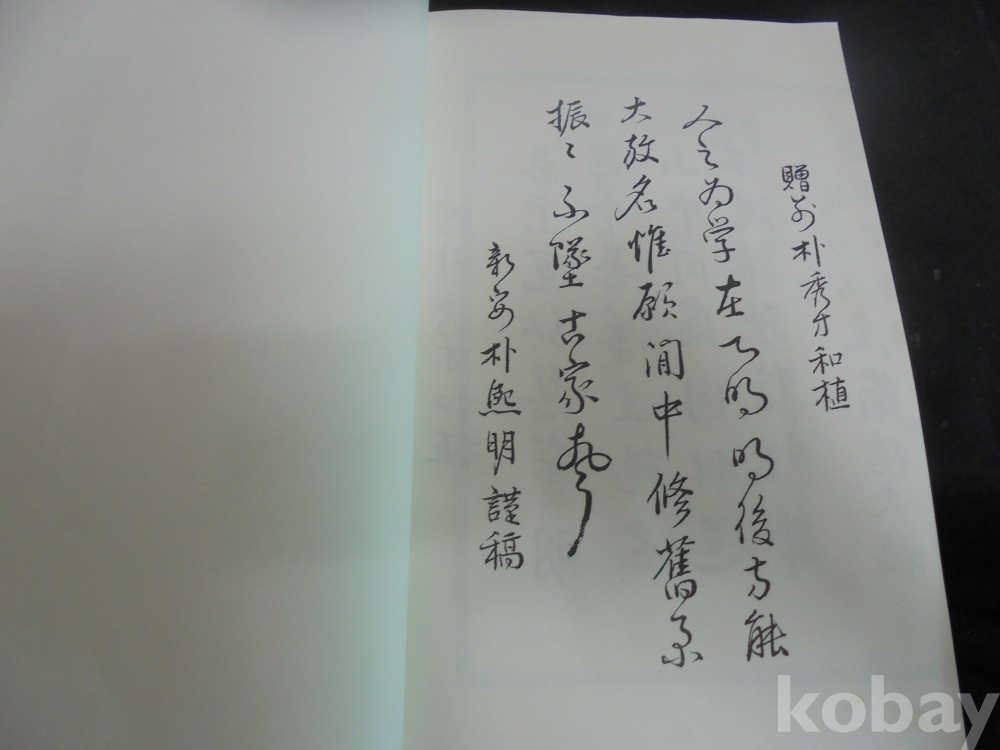 贈別朴秀才和植
人之为学在乎明明後方能
大放名惟願閒中修舊業
振〻不墜古家聲
新安朴熙明謹稿
kobay